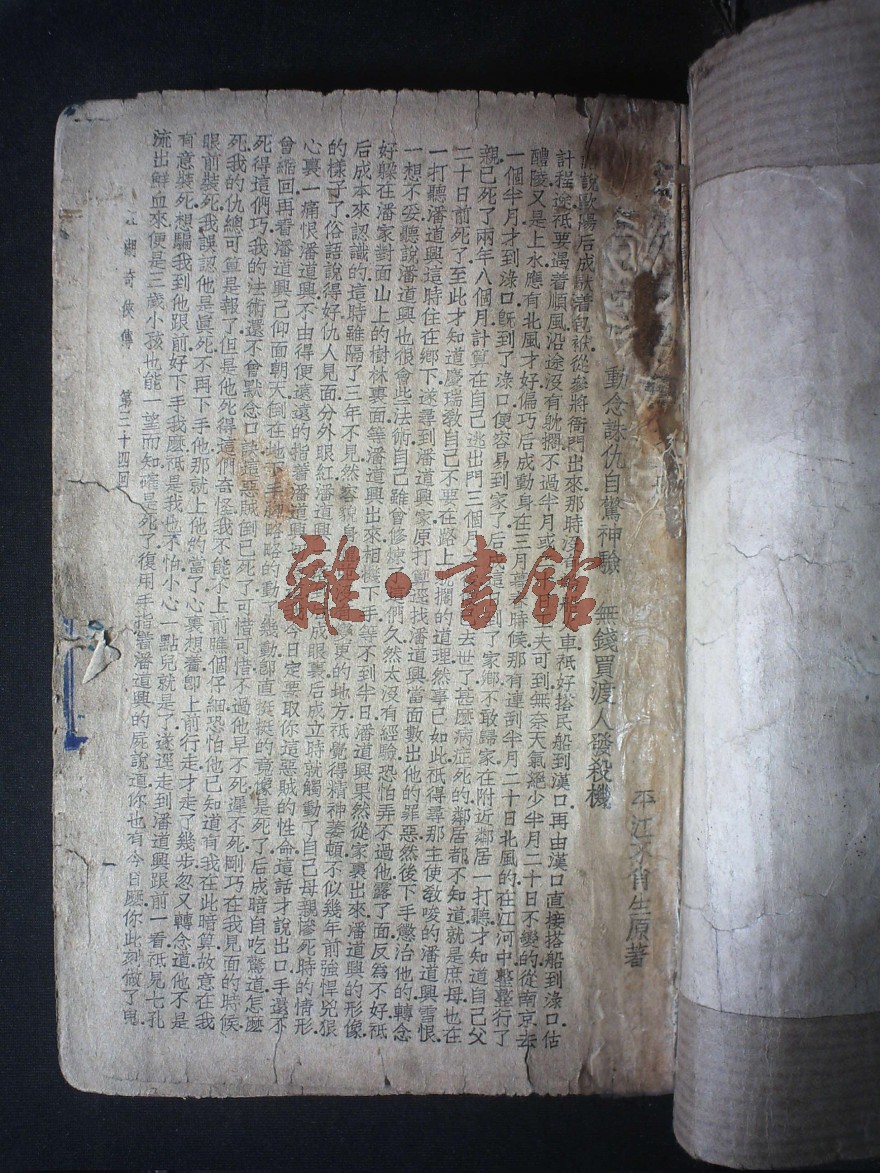 平江不肖生原著
動念誅仇自驚神驗 無錢買渡人發殺機
說歐陽后成馱着包袱從參將衙門出來那時沒 車祇好搭民船到漢口再由漢口直接搭船到淥口估
計程途祇要遇着順風沿途沒有躭擱不過半月或 夫可到無奈天氣絕少半月二十日不變的從南京去
醴陵又是上水應有北風才好偏巧后成動身在三月 時候那有連刮半月二十日北風的在江河中整整行了
一個半月才到淥口旣到了淥口便容易到家了后 這 到了家鄉不敢歸家在附近鄰居一打聽才知道自己父
親已死了兩年八個月計算在自己逃出門三個月 去世了甚麽病症死的鄰居都不知道就是庶母也在
二十日前死了至此才知道慶瑞教自己不要在路上 擱的道理然事已如此祇得尋那主使教唆的潘道興雪恨
一打聽潘道興這時住在鄉下遂尋到潘道興家原打 逕找潘道興當面數出他的罪惡然後下手懲治他的轉念
一想不妥聽說潘道興也很會些法術自己雖曾修煉了 們久然太沒有經驗恐怕弄不過他露了面反爲不好祇
好躱在潘家對面山上的樹林裏面等潘道興出來相機下手等不到半日潘道興果然從家裏出來潘道興的形像
后成本來認識的這時雖隔了三年不見然容貌身 改變更的地方祇覺得精神萎頓不似幾年前強悍兇狠
的樣子了俗語說得好仇人見面分外眼紅潘道興 成眼裏后成立時就觸動了自己母親慘死時的情形
心裏一痛恨潘道興不由得便遠遠的指着潘道興 今日定要取你這惡賊的性命這話才說出口手還不
曾縮回再看潘道興已仰面朝天倒在地下手脚略略的動 幾動卽直挺挺的竟像是死了后成暗自吃驚道怎麽
死得這們巧我的法術還不會默念口訣這惡賊倒已死了可惜可惜不過他早不死遲不死剛巧在我見面的時候
死我的仇總可算是報了但是他死得這們奇怪我不能不上前瞧個仔細恐怕他已知道有我在此暗算故意在我
眼前裝死我誤認他是眞死不再下手他那就上他的當了心裏想着卽上前行走才走了幾步忽又轉念道他不是
有意裝死想騙我到他跟前好下手我麽祇是我也不怕小心一點兒就是了遂逕走到潘道興跟前一看祇見七孔
流出鮮血來便是三歲小孩也能一望而知確是死了復用手指着潘道興的屍說道你也有今日麽你此刻做了鬼
江湖奇俠傳 第三十四回
雜·書館